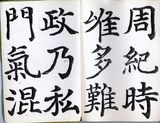 周紀時
維多難
政乃私
門氣混